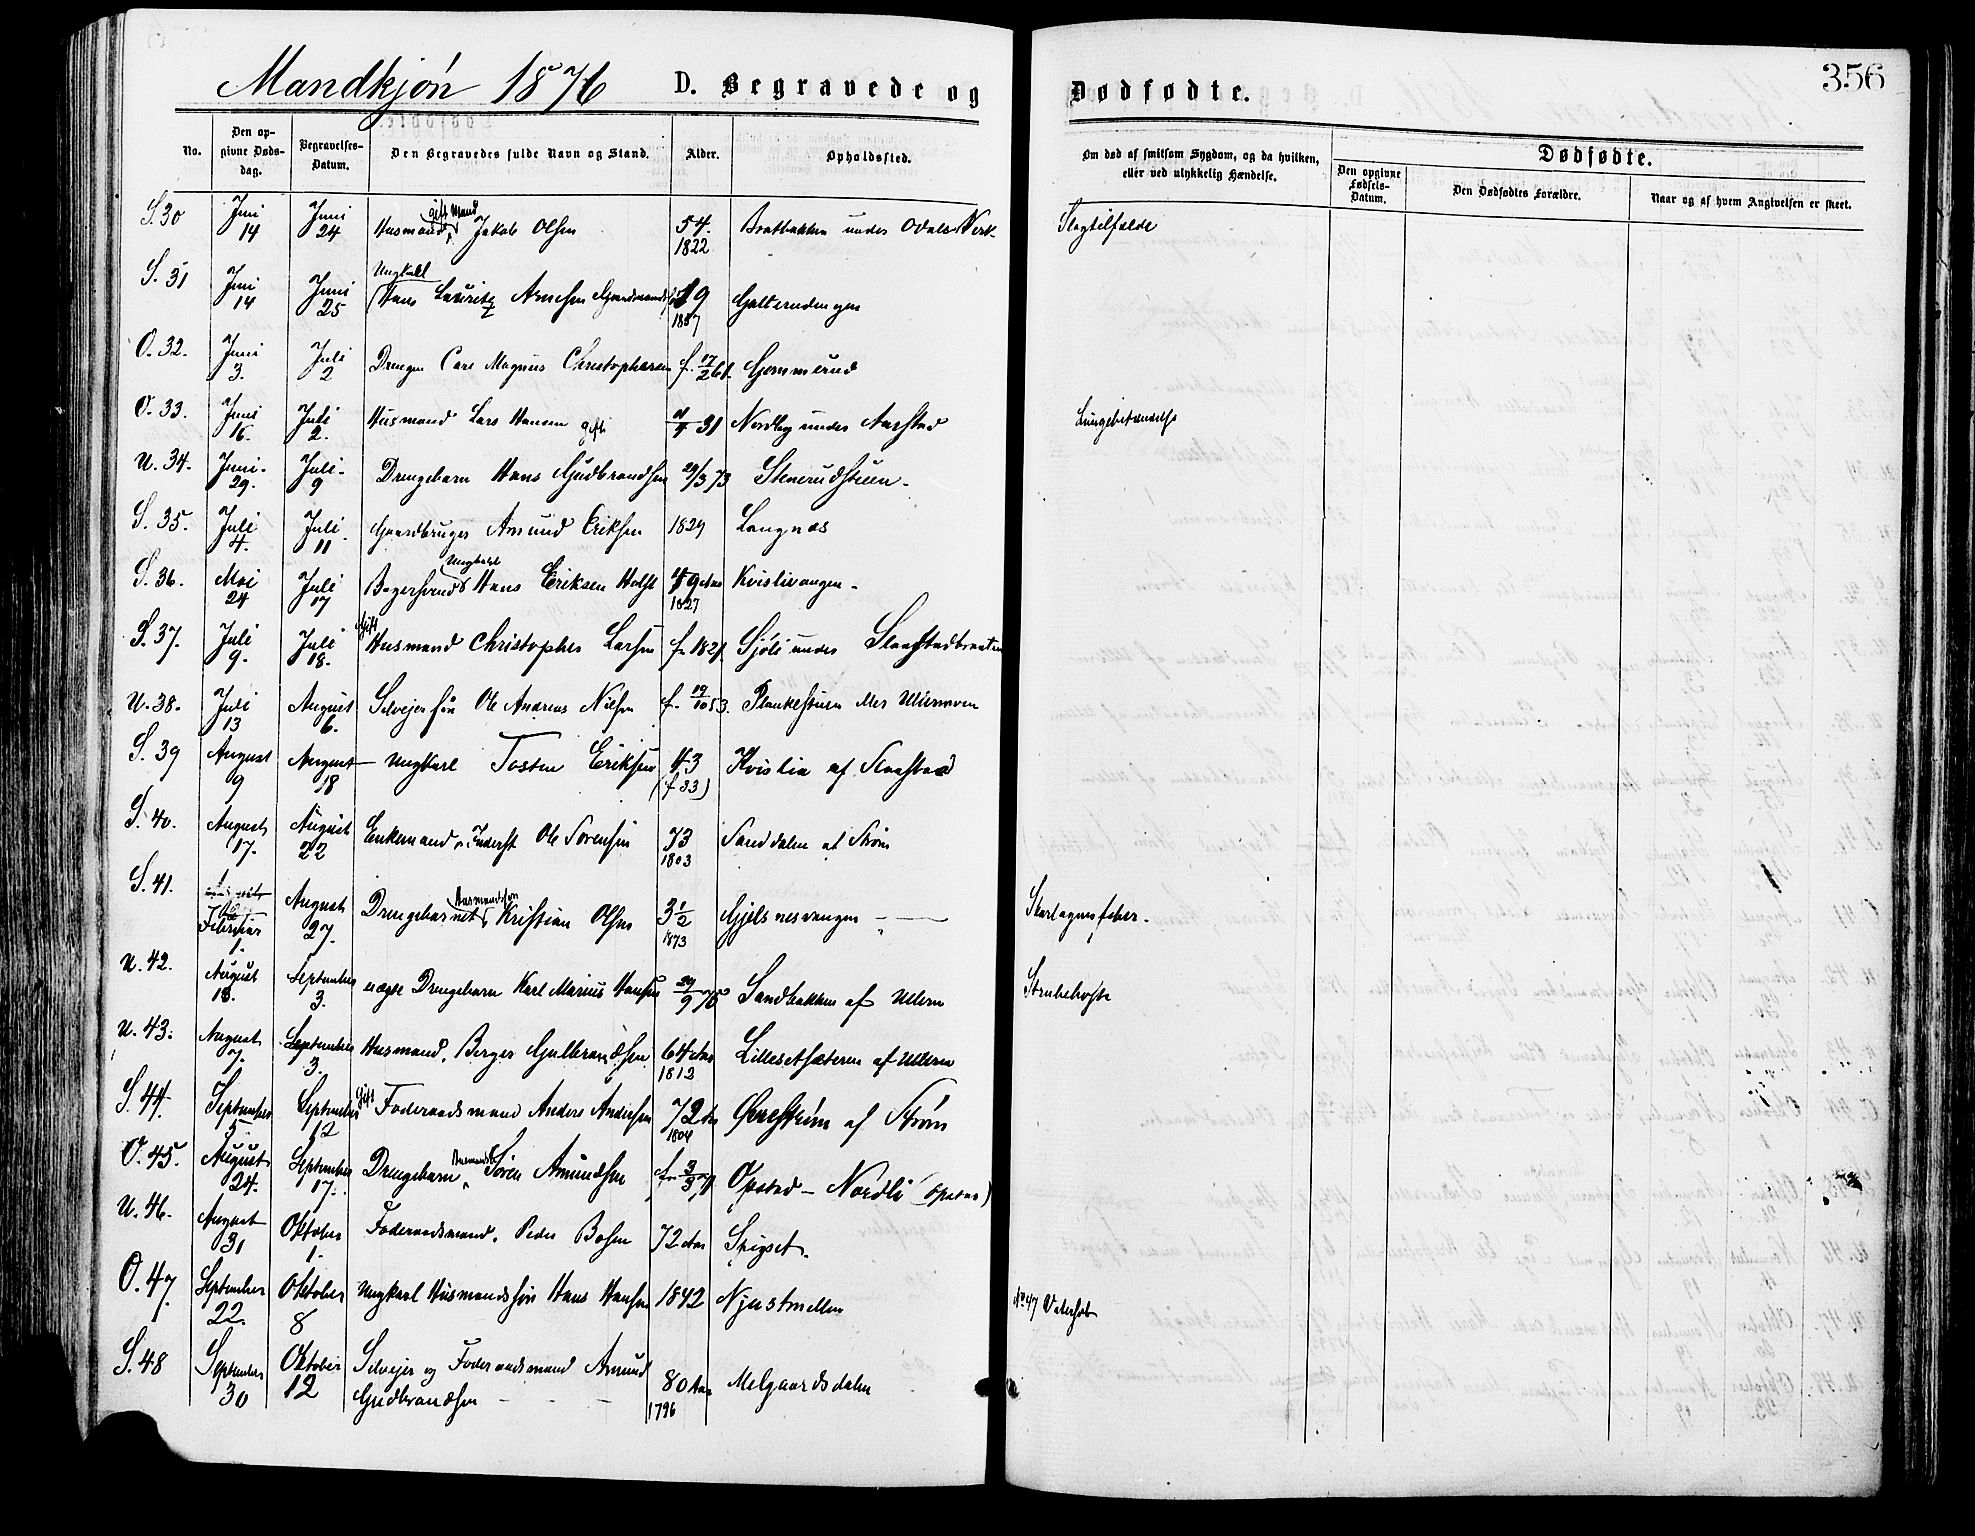 Mandkjøn 1876 D. Begravede og Dødfødte. 356
No. Den opgivne Dødsdag. Begravelses-Datum. Den Begravedes fulde Navn og Stand. Alder. Opholdssted. Om død af smitsom Sygdom, og da hvilken, eller ved ulykkelig Hændelse. Dødfødte.
Den opgivne Fødsels-Datum. Den Dødfødtes Forældre. Naar og af hvem Angivelsen er skeet.
S. 30 Juni 14 Juni 24 Husmand gift Mand Jakob Olsen 54. 1822 Bratbakken under Odals Verk Slagtilfælde
S. 31 Juni 14 Juni 25 Ungkarl Hans Lauritz Arnesen 19 1857
O. 32. Juni 3. Juli 2 Drengen Carl Magnus Christophersen f. 17/2 61. Gommerud
O. 33. Juni 16. Juli 2. Husmand Lars Hansen gift 31 Nordby under Aarstad Lungebetændelse
U. 34. Juni 29. Juli 9 Drengebarn Hans Gudbrandsen 29/3 73 Stenerudstuen
S. 35. Juli 4. Juli 11 Gaardbruger Amund Eriksen 1829 Langnæs
S. 36. Mai 24 Juli 17 Ungkarl Hans Eriksen Holst 49 Aar 1827 Kvislivangen
S. 37. Juli 9. Juli 18. Gift Husmand Christopher Larsen f. 1821. Sjøli under
U. 38. Juli 13 August 6. Selvejersøn Ole Andreas Nilsen f. 19/10 53. Plankestuen
S. 39 August 9 August 18 Ungkarl Tosten Eriksen 43 (f 33) Kvislia af
S. 40. August 17. August 22 Enkemand, Inderst Ole Sørensen 73 1803 Sanddalen af Strøm
S. 41. Februar 1. August 27. Drengebarnet Husmandssøn Kristian Olsen 3 1/2 1873 Gjelsnesvangen Skarlagensfeber.
U. 42. August 18. September 3. uægte Drengebarn Karl Marius Hansen 29/9 75 Sandbakken af Ullern Strubehoste
U. 43. August 7. September 3. Husmand, Berger Gulbrandsen 64 Aar 1812 Lillesetsæteren af Ullern
S. 44. September 5 September 12 Gift Føderaadsmand Anders Andersen 72 Aar 1804 af Strøm
O. 45. August 24. September 17. Drengebarn Søren Amundsen f. 3/3 71 Opstad – Nordli (Opstad)
U. 46. August 31 Oktober 1. Føderaadsmand, Peder Bosen 72 Aar Spigset.
O. 47 September 22. Oktober 8 Ungkarl Husmandssøn Hans Hansen 1842 No 47
S. 48 September 30 Oktober 12 Selvejer og Føderaadsmand Amund Gudbrandsen 80 Aar 1796 Melgaardsdalen